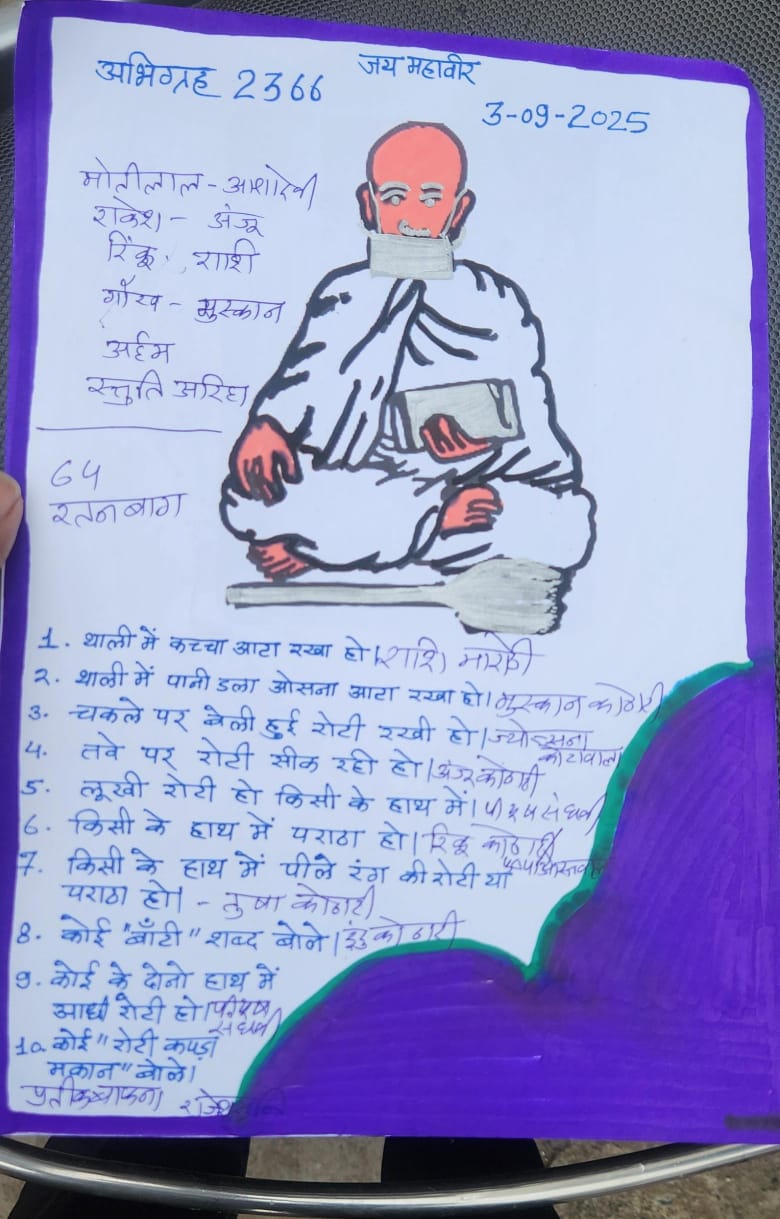 अभिग्रह 2366
जय महावीर
3-09-2025
मोतीलाल - आशादेवी
राकेश - अंजू
रिंकू, राशि
गौरव - मुस्कान
अर्हम
स्तुति अरिहा
64
रतनबाग
1. थाली में कच्चा आटा रखा हो। राशि
2. थाली में पानी डला ओसना आटा रखा हो। मुस्कान कोठारी
3. चकले पर बेली हुई रोटी रखी हो। ज्योत्सना
4. तवे पर रोटी सीक रही हो। अंजू कोठारी
5. लूखी रोटी हो किसी के हाथ में।
6. किसी के हाथ में पराठा हो। रिंकू कोठारी
7. किसी के हाथ में पीले रंग की रोटी या
पराठा हो। - तुषा कोठारी
8. कोई "बाँटी" शब्द बोले। इंदु कोठारी
9. कोई के दोनो हाथ में
आधी रोटी हो।
10. कोई "रोटी कपड़ा
मकान" बोले।